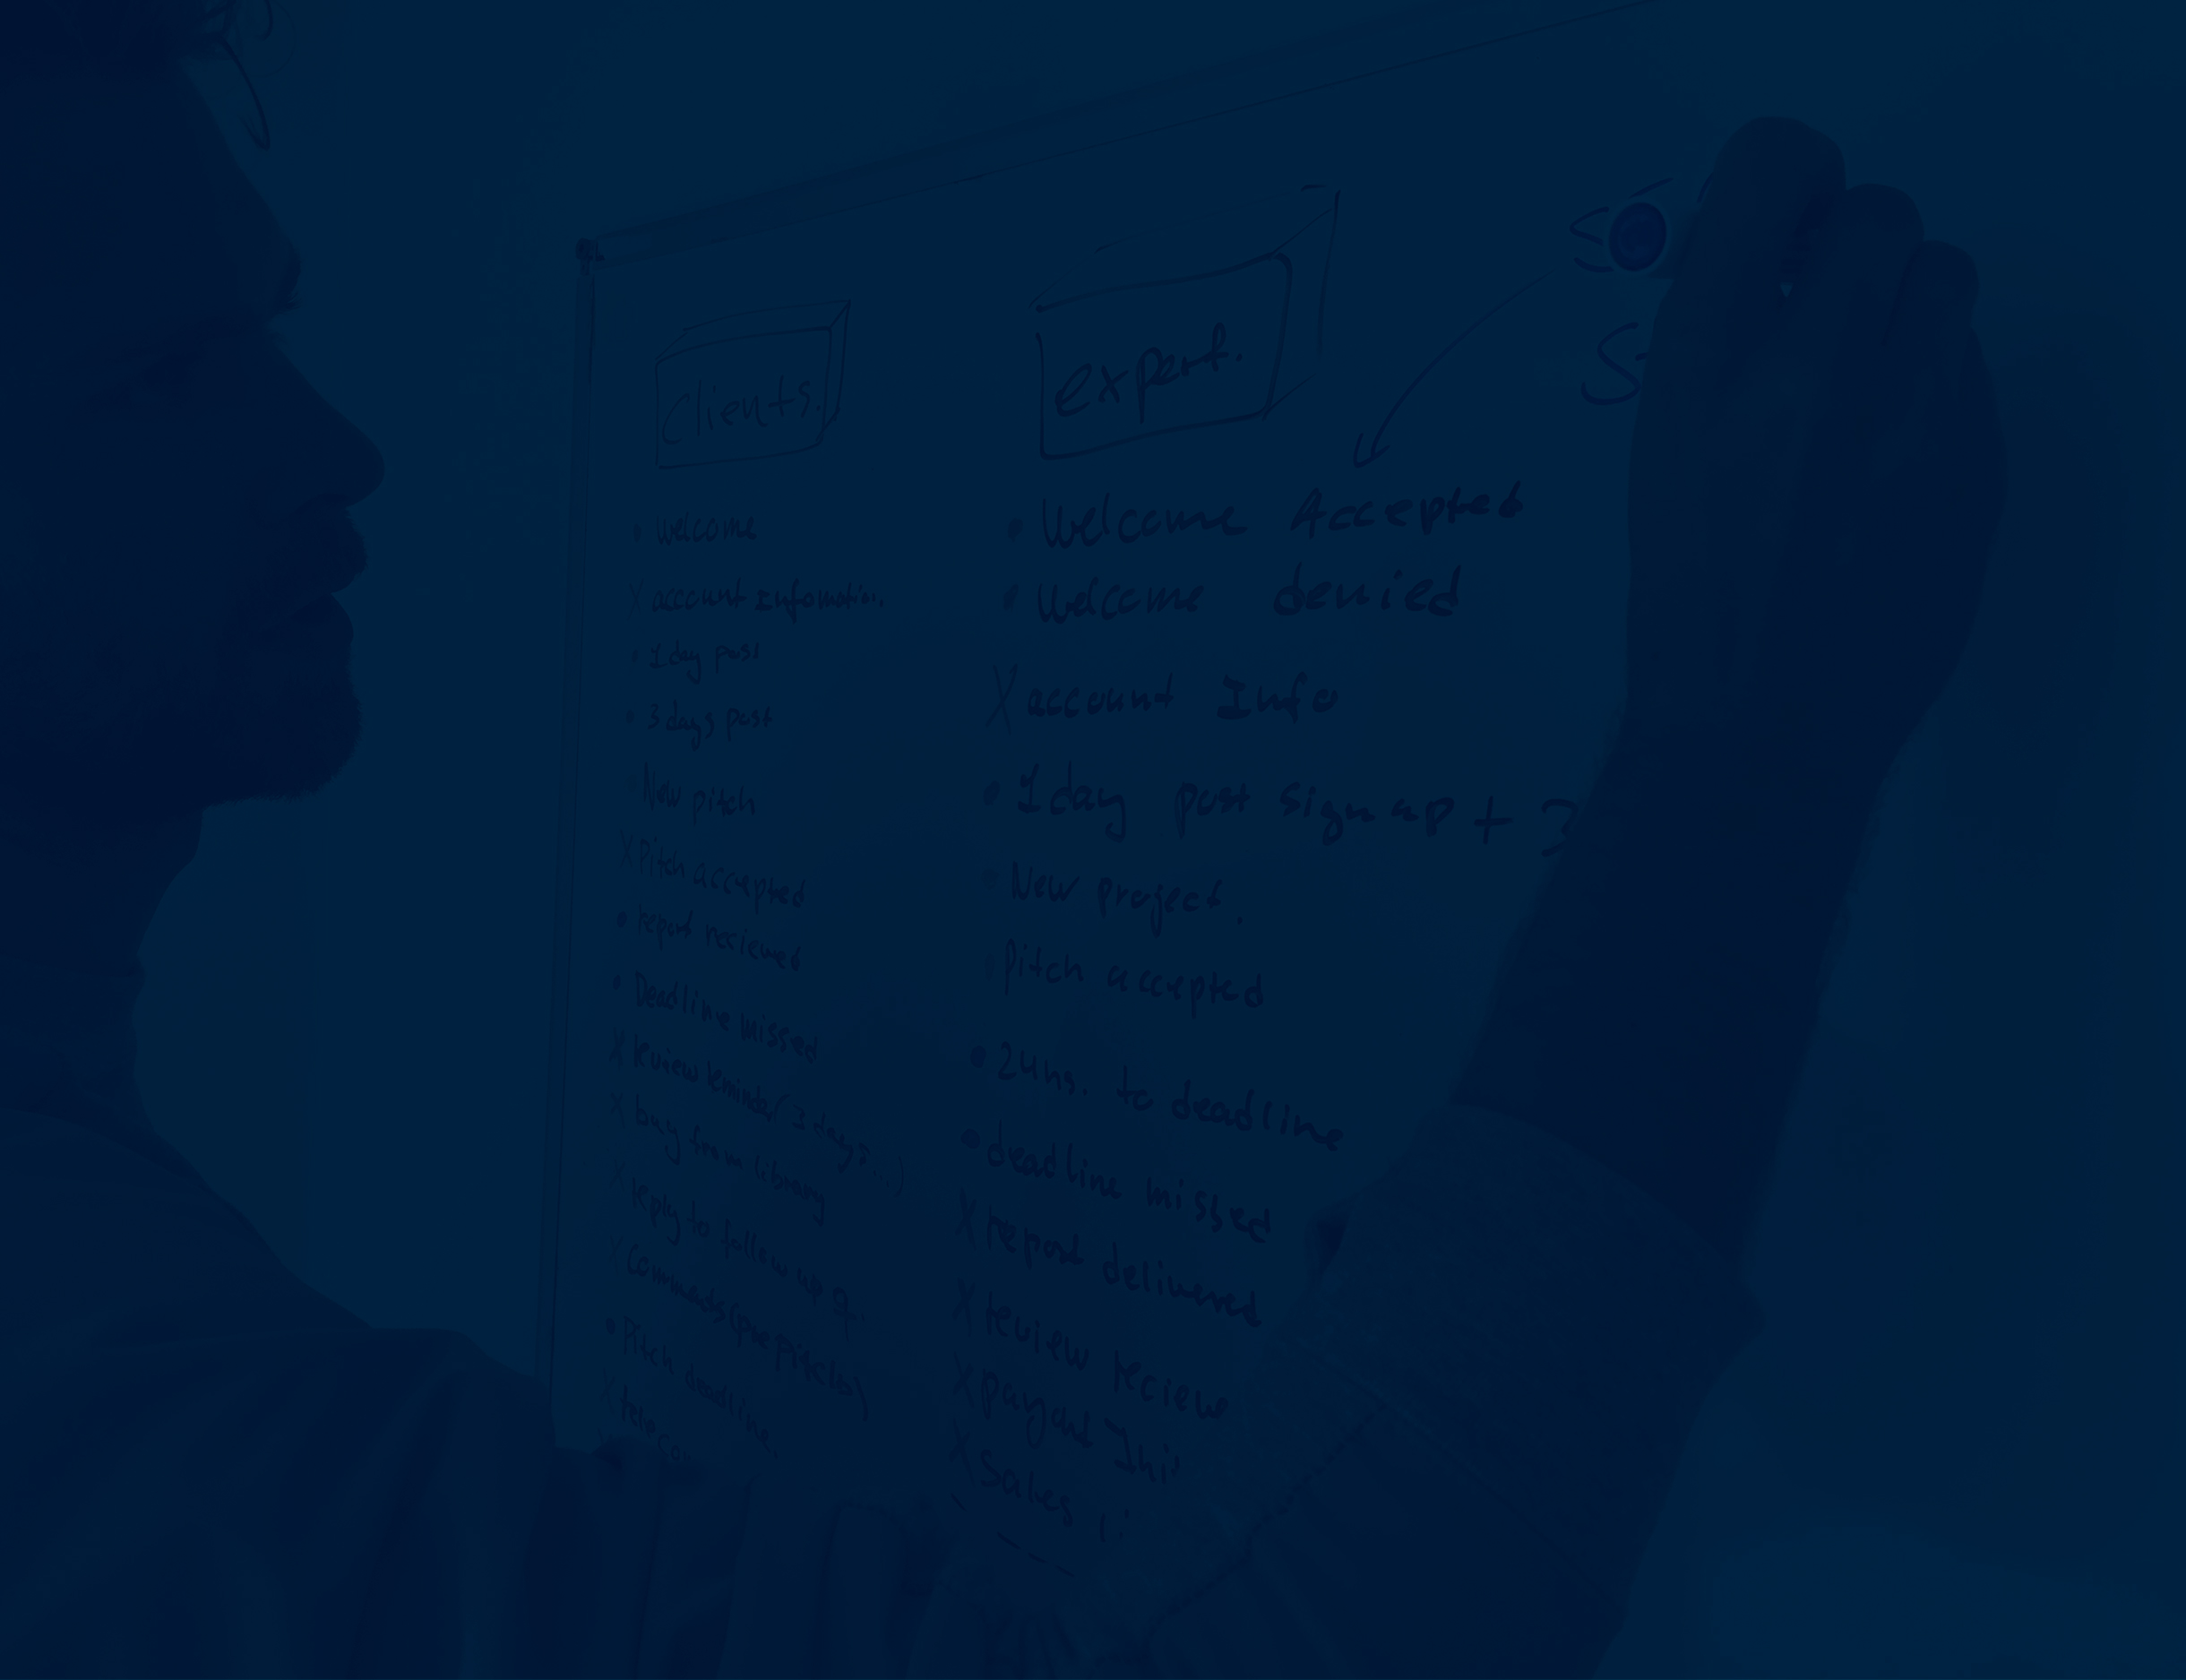 Clients.
• Welcome
X account Infomation.
• 1 day post
• 3 days post
New pitch
X Pitch accepted
• report recieved
• Deadline missed
X review reminder (3 days...)
X buy from library
X reply to follow up q.
X Comments (pre pitch)
• Pitch deadline.
expert.
• Welcome Accepted
• Welcome denied
X account Info
• 1 day post sign up + 3
New project.
Pitch accepted
• 24hs. to deadline
• deadline missed
X report delivered
X review recieve
X payout
X Sales